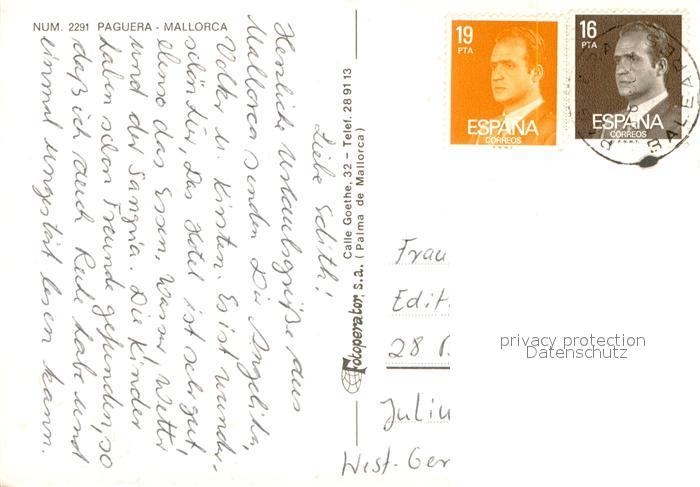 NUM. 2291 PAGUERA - MALLORCA
Liebe Edith!
Herzliche Urlaubsgrüße aus
Mallorca senden Dir Angelika,
Volker u. Kirsten. Es ist wunder-
schön hier. Das Hotel ist sehr gut
ebenso das Essen, Wasser, Wetter
und der Sangria. Die Kinder
haben schon Freunde gefunden, so
daß ich auch Ruhe habe und
einmal ungestört lesen kann.
Fotoperator, s.a.
Calle Goethe, 32 - Telef. 28 91 13
(Palma de Mallorca)
19
PTA
ESPAÑA
CORREOS
F.N.M.T.
16
PTA
ESPAÑA
CORREOS
F.N.M.T.
BALEARE
Frau
Edit
28 B
Juliu
West-Ger
privacy protection
Datenschutz